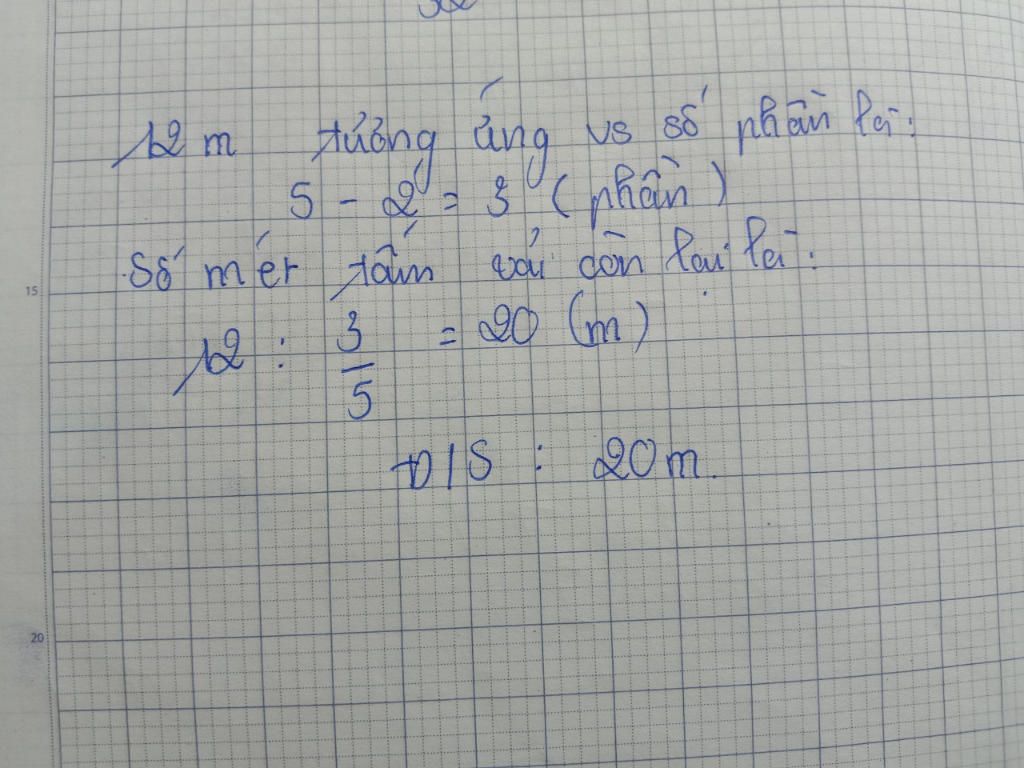 12 m tương ứng vs số phần là:
5 - 2 = 3 (phần)
Số mét tấm vải còn lại là:
12 : 3/5 = 20 (m)
Đ/S : 20m.
15
20